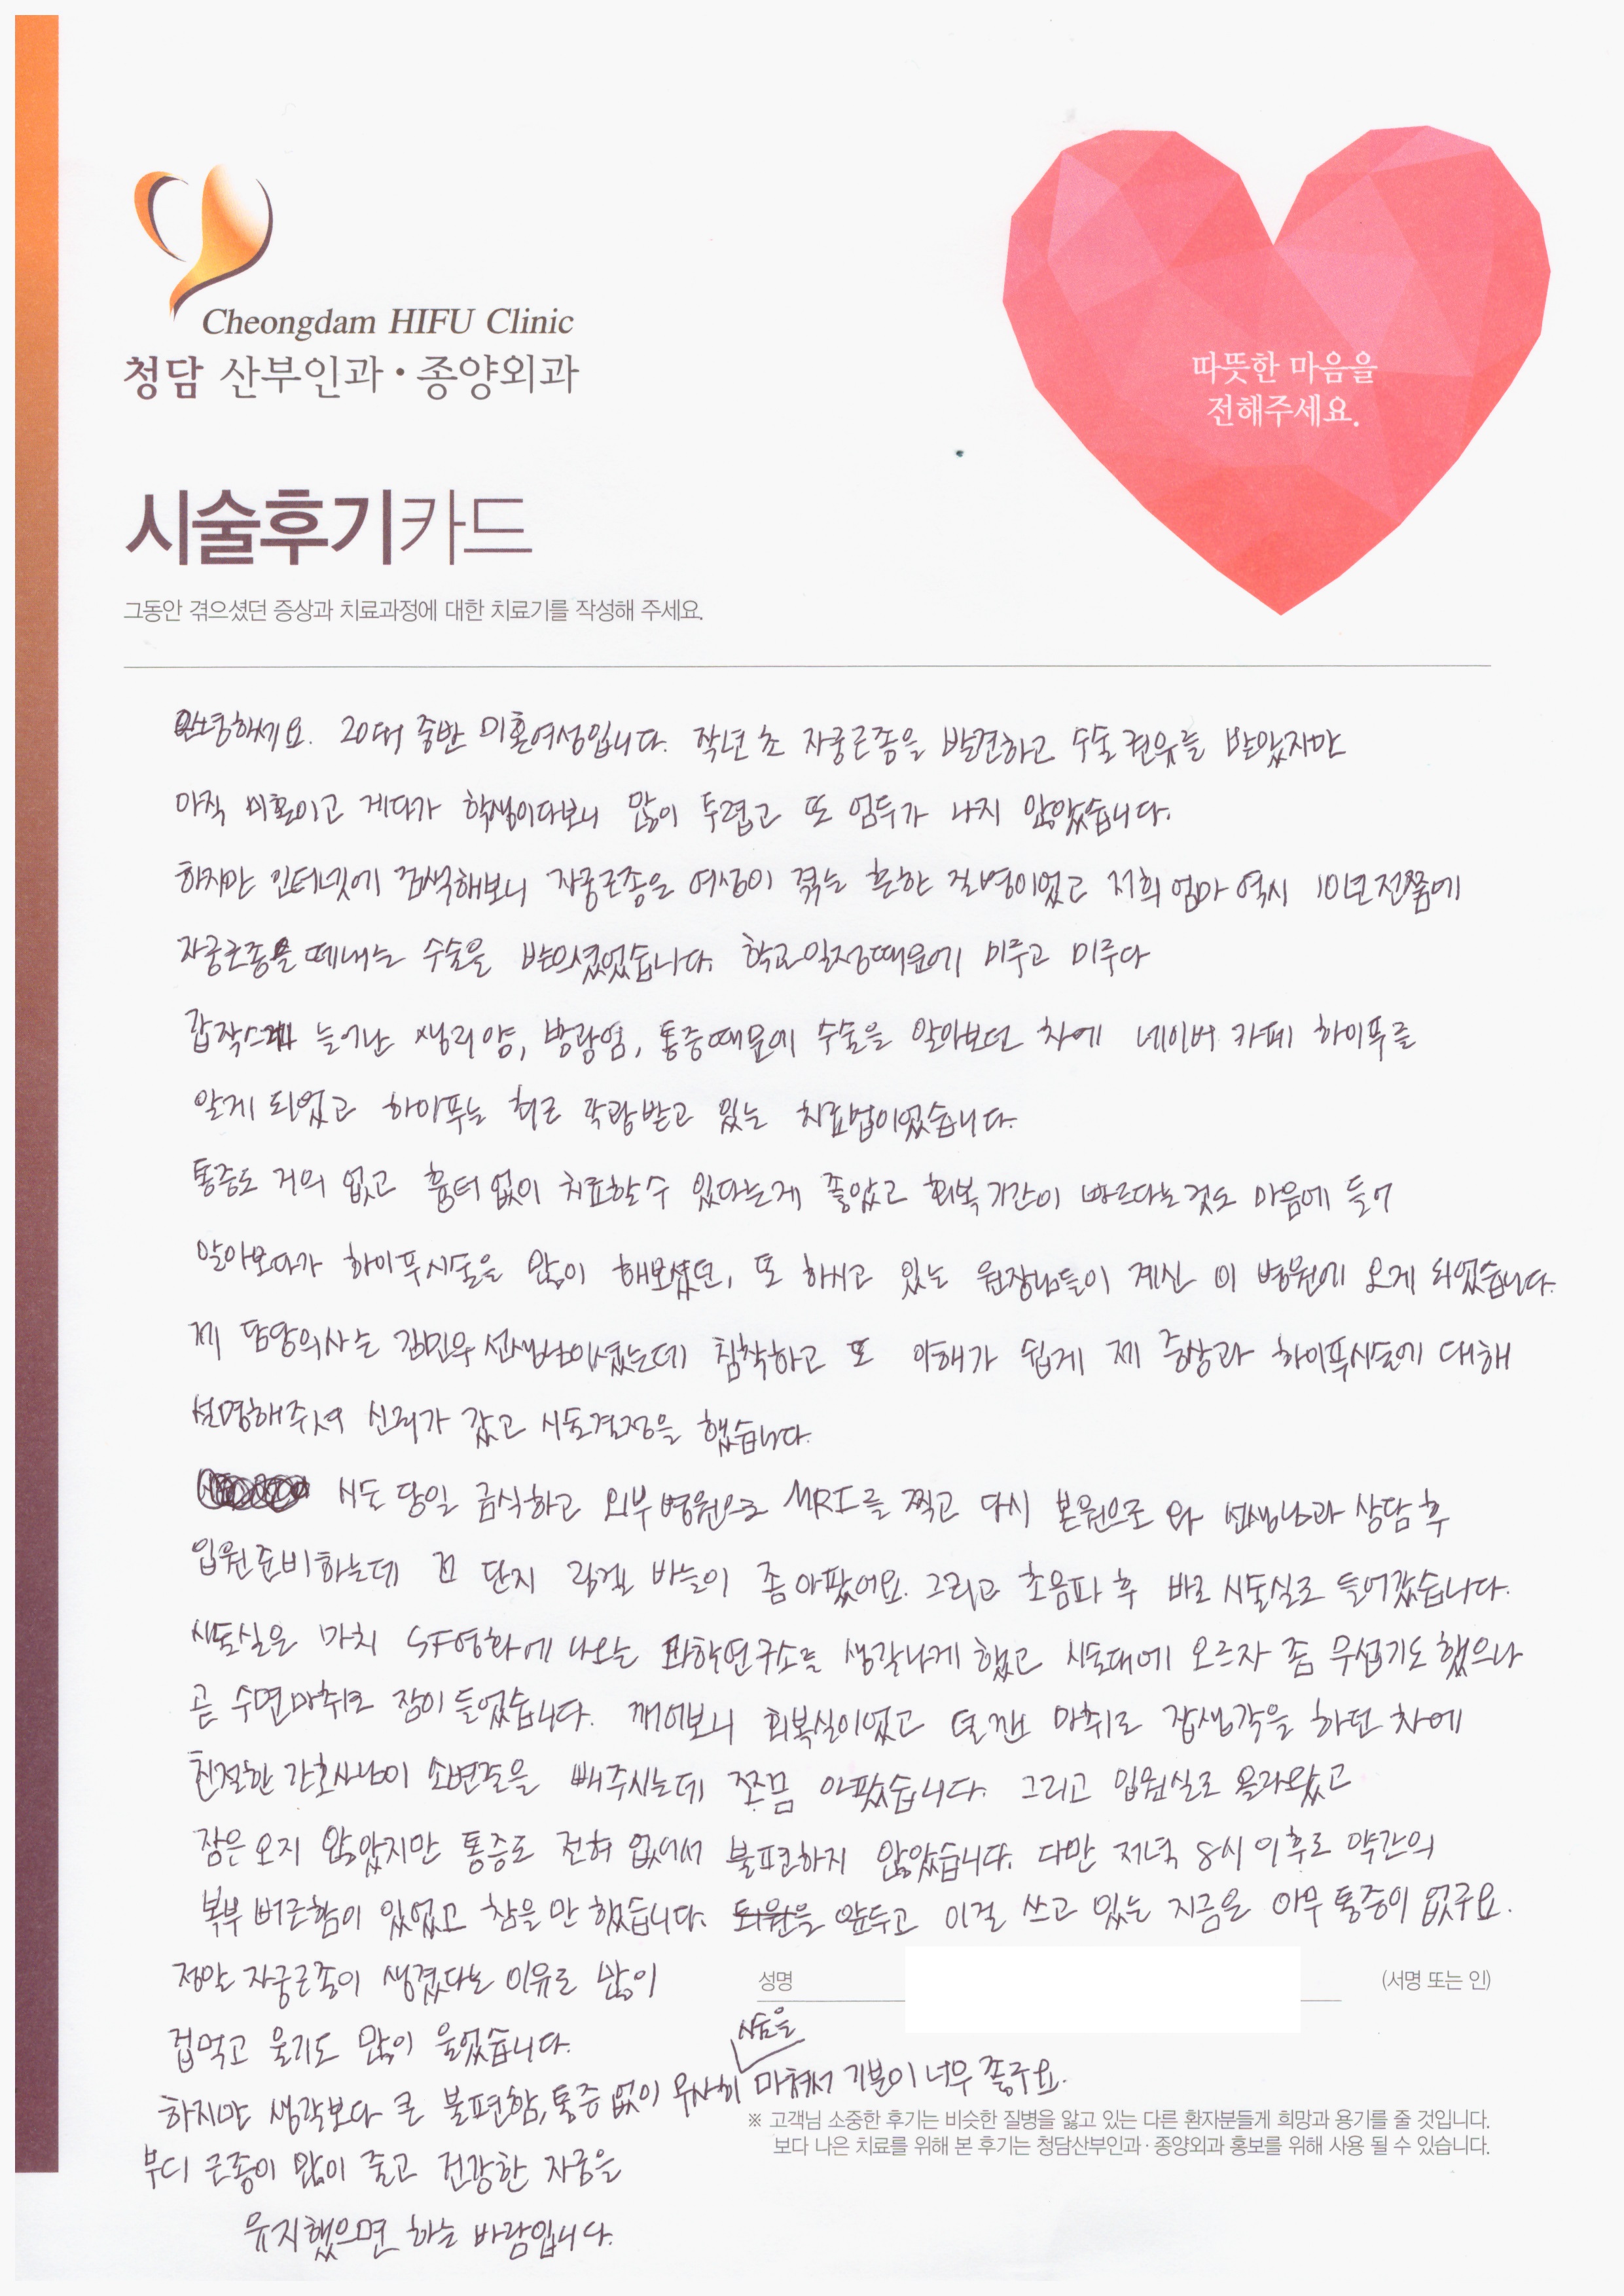 Cheongdam HIFU Clinic
청담 산부인과·종양외과
따뜻한 마음을
전해주세요.
시술후기카드
그동안 겪으셨던 증상과 치료과정에 대한 치료기를 작성해 주세요.
안녕하세요. 20대 중반 미혼여성입니다. 작년 초 자궁근종을 발견하고 수술 권유를 받았지만
아직 미혼이고 게다가 학생이다보니 많이 두렵고 또 엄두가 나지 않았습니다.
하지만 인터넷에 검색해보니 자궁근종은 여성이 겪는 흔한 질병이었고 저희 엄마 역시 10년 전쯤에
자궁근종을 떼내는 수술을 받으셨었습니다. 학교일정때문에 미루고 미루다
갑작스레 늘어난 생리양, 방광염, 통증때문에 수술을 알아보던 차에 네이버 카페 하이푸를
알게 되었고 하이푸는 최근 각광받고 있는 치료법이었습니다.
통증도 거의 없고 흉터 없이 치료할수 있다는게 좋았고 회복 기간이 빠르다는것도 마음에 들어
알아보다가 하이푸시술을 많이 해보셨던, 또 하시고 있는 원장님들이 계신 이 병원에 오게 되었습니다.
제 담당의사는 김민우 선생님이셨는데 침착하고 또 이해가 쉽게 제 증상과 하이푸시술에 대해
설명해주셔 신뢰가 갔고 시술결정을 했습니다.
시술 당일 금식하고 외부병원으로 MRI를 찍고 다시 본원으로 와 선생님과 상담 후
입원준비하는데 꼽 단지 링겔 바늘이 좀 아팠어요. 그리고 초음파 후 바로 시술실로 들어갔습니다.
시술실은 마치 SF영화에 나오는 과학연구소를 생각나게 했고 시술대에 오르자 좀 무섭기도 했으나
곧 수면마취로 잠이 들었습니다. 깨어보니 회복실이었고 덜깬 마취로 잡생각을 하던 차에
친절한 간호사님이 소변줄을 빼주시는데 쪼끔 아팠습니다. 그리고 입원실로 올라왔고
잠은 오지 않았지만 통증도 전혀 없어서 불편하지 않았습니다. 다만 저녁 8시 이후로 약간의
복부 뻐근함이 있었고 참을 만 했습니다. 퇴원을 앞두고 이걸 쓰고 있는 지금은 아무 통증이 없구요.
정말 자궁근종이 생겼다는 이유로 많이
성명 (서명 또는 인)
겁먹고 울기도 많이 울었습니다.
시술을
하지만 생각보다 큰 불편함, 통증 없이 무사히 마쳐서 기분이 너무 좋구요.
※ 고객님 소중한 후기는 비슷한 질병을 앓고 있는 다른 환자분들게 희망과 용기를 줄 것입니다.
보다 나은 치료를 위해 본 후기는 청담산부인과·종양외과 홍보를 위해 사용 될 수 있습니다.
부디 근종이 많이 줄고 건강한 자궁을
유지했으면 하는 바람입니다.